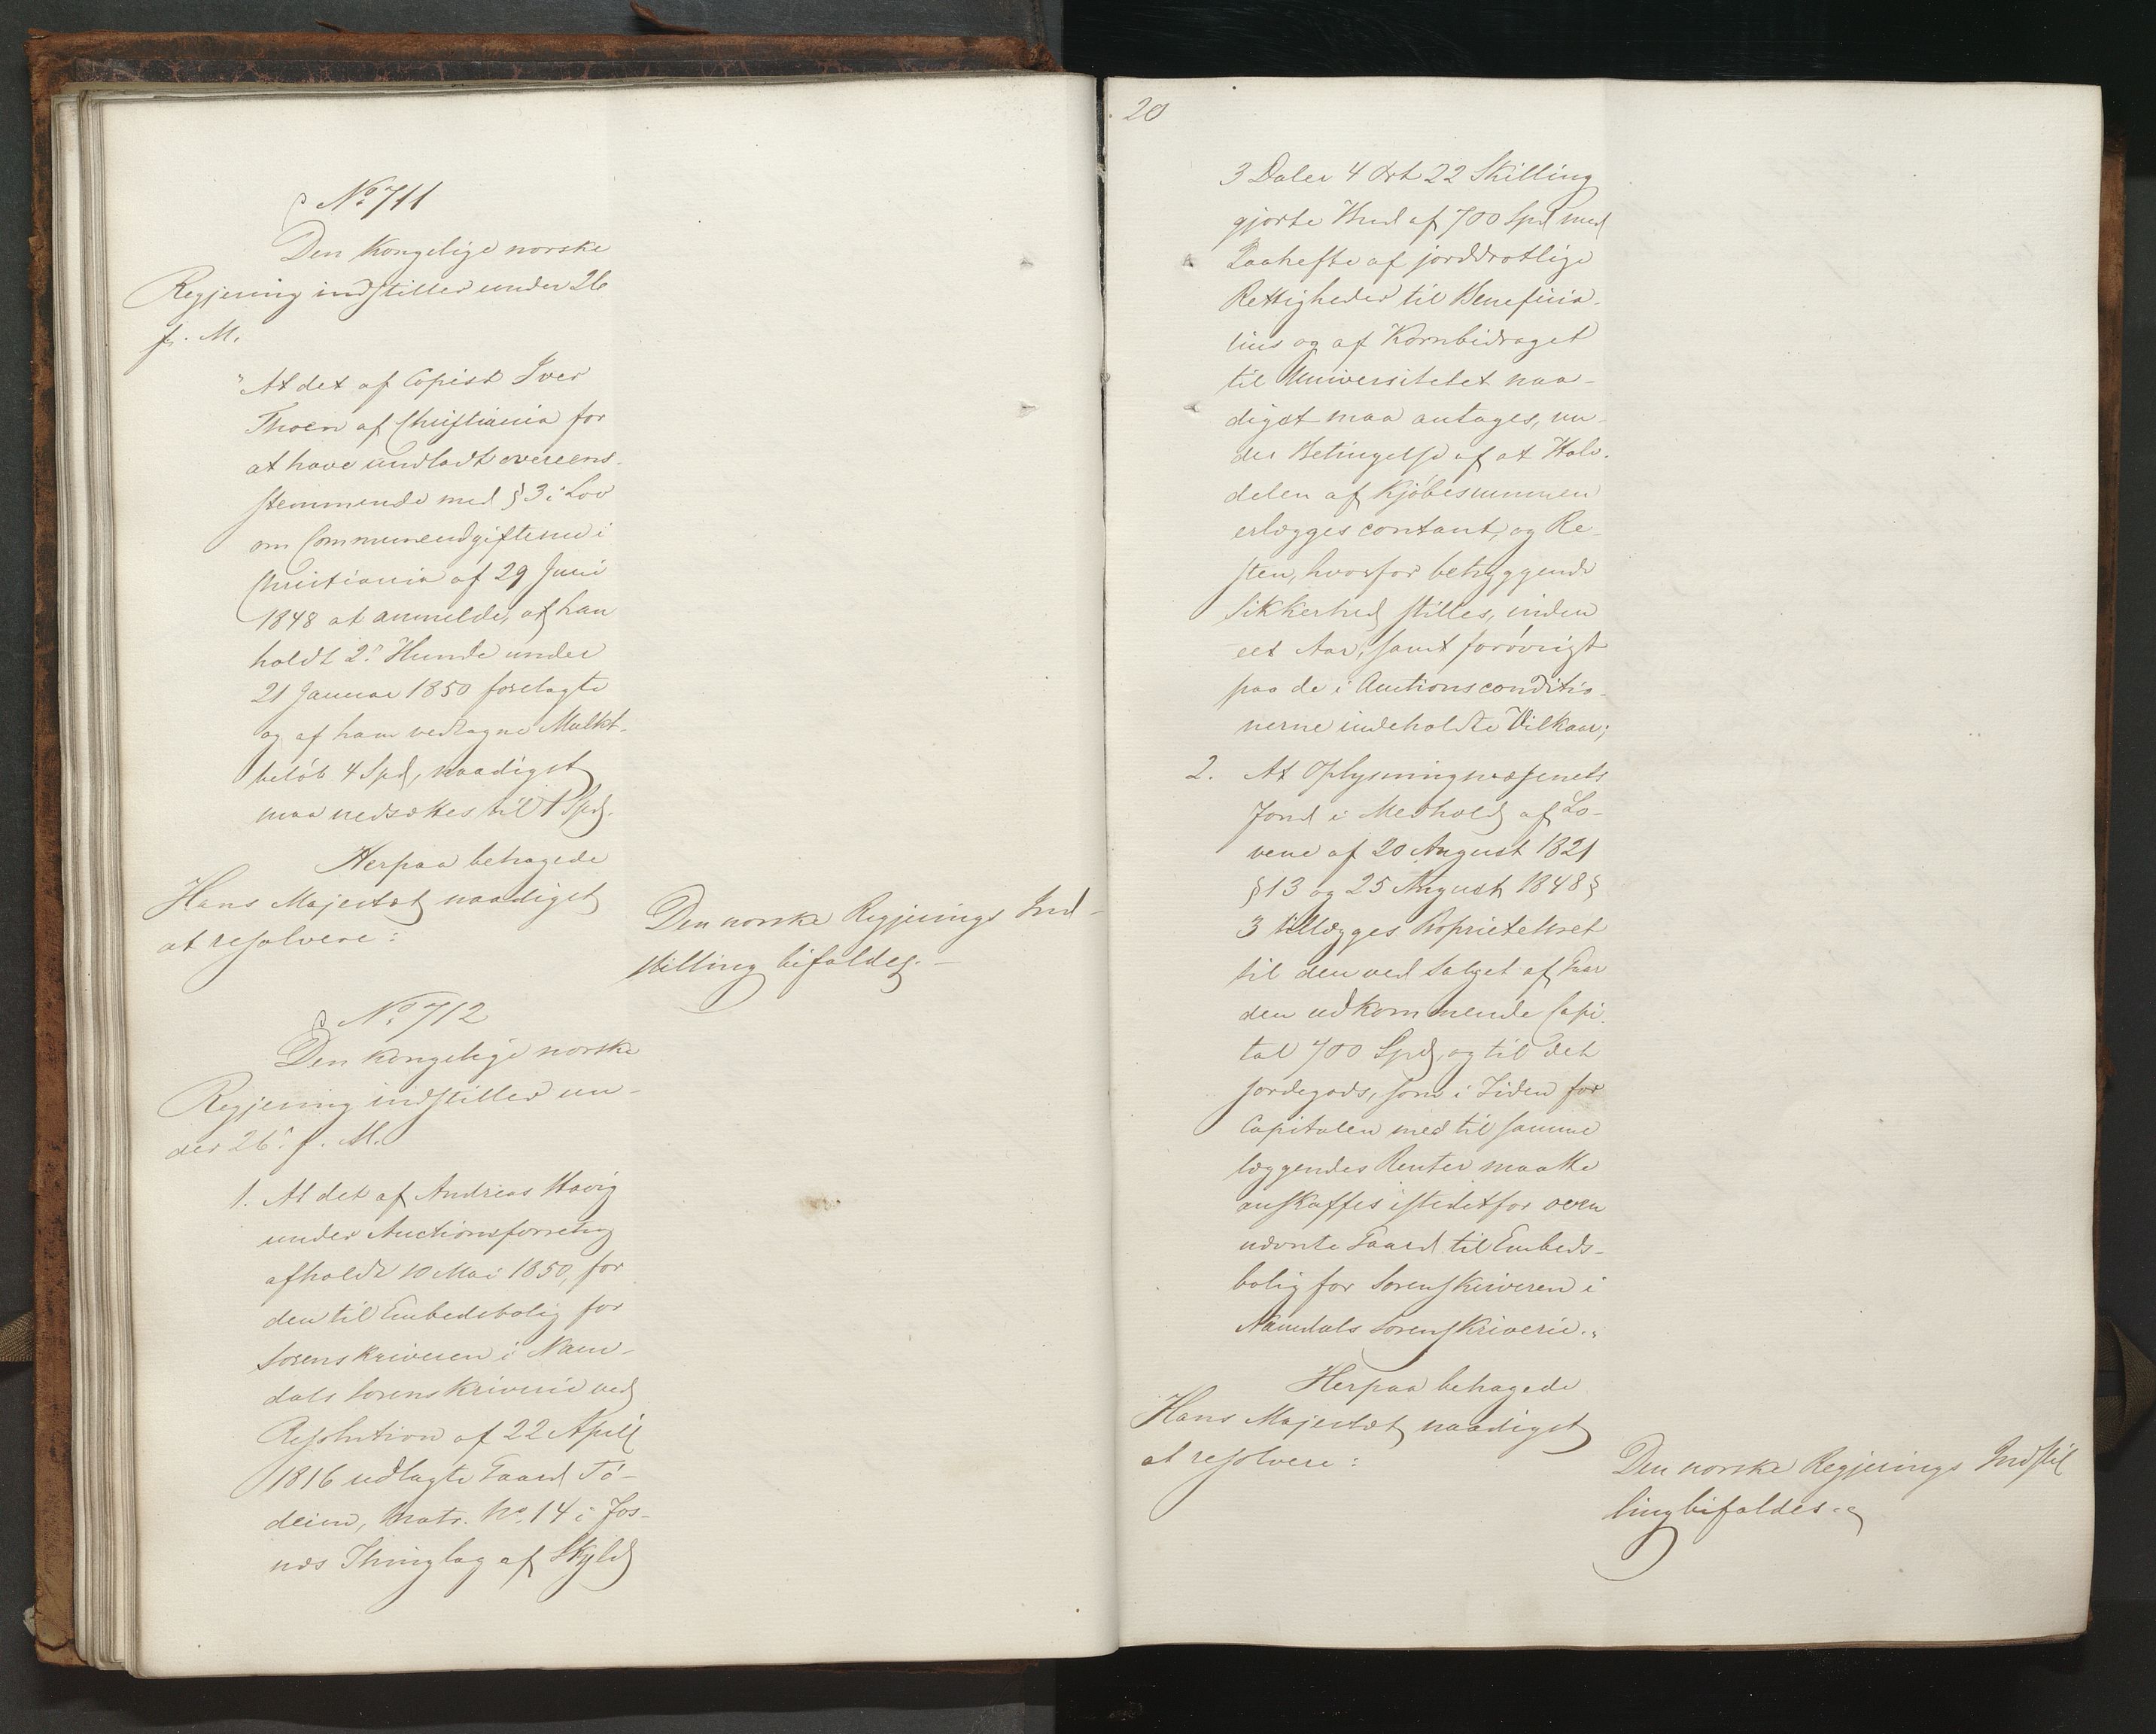 No 711
Den Kongelige norske
Regjering indstiller under 26
f. M.
"At det af Copist Iver
Thoen af Christiania for
at have undladt overeens-
stemmende med § 3 i Lov
om Communeudgifterne i
Christiania af 29 Juni
1848 at anmelde, at han
holdt 2de Hunde under
21 Januar 1850 forelagte
og af ham vedtagne Mulkt-
beløb 4 Spd, naadigst
maa nedsættes til 1 Spd.
Herpaa behagede
Hans Majestæt naadigst
at resolvere:
Den norske Regjerings Ind-
stilling bifaldes.-
No 712
Den kongelige norske
Regjering indstiller un-
der 26. f. M.
1. At det af Andreas Havig
under Auctionsforretng
afholdt 10 Mai 1850, for
den til Embedsbolig for
Sorenskriveren i Nam-
dals Sorenskriverie ved
Resolution af 22 April
1816 udlagte Gaard Fø-
deim, Matr. No. 14 i Fos-
næs Thinglag af Skyld
20
3 Daler 4 Ort 22 Skilling
gjorte Bud af 700 Spd med
Paahefte af jorddrotlige
Rettigheder til Beneficia-
rius og af Kornbidraget
til Universitetet naa-
digst maa antages, un-
der Betingelse af at Halv-
delen af Kjøbesummen
erlægges contant, og Re-
sten, hvorfor betryggende
Sikkerhed stilles, inden
eet Aar, samt forøvrigt
paa de i Auctionsconditio-
nerne indeholdte Vilkaar;
2. At Oplysningsvæsenets
Fond i Medhold af Lo-
vene af 20 August 1821
§ 13 og 25 August 1848 §
3 tillægges Proprietetsret
til den ved Salget af Gaar
den udkommende Capi-
tal 700 Spd, og til det
Jordegods, som i Tiden for
Capitalen med til samme
læggendes Renter maatte
anskaffes istedetfor oven
nævnte Gaard til Embeds-
bolig for Sorenskriveren i
Namdals Sorenskriverie."
Herpaa behagede
Hans Majestæt naadigst
at resolvere:
Den norske Regjerings Indstil
ling bifaldes.-